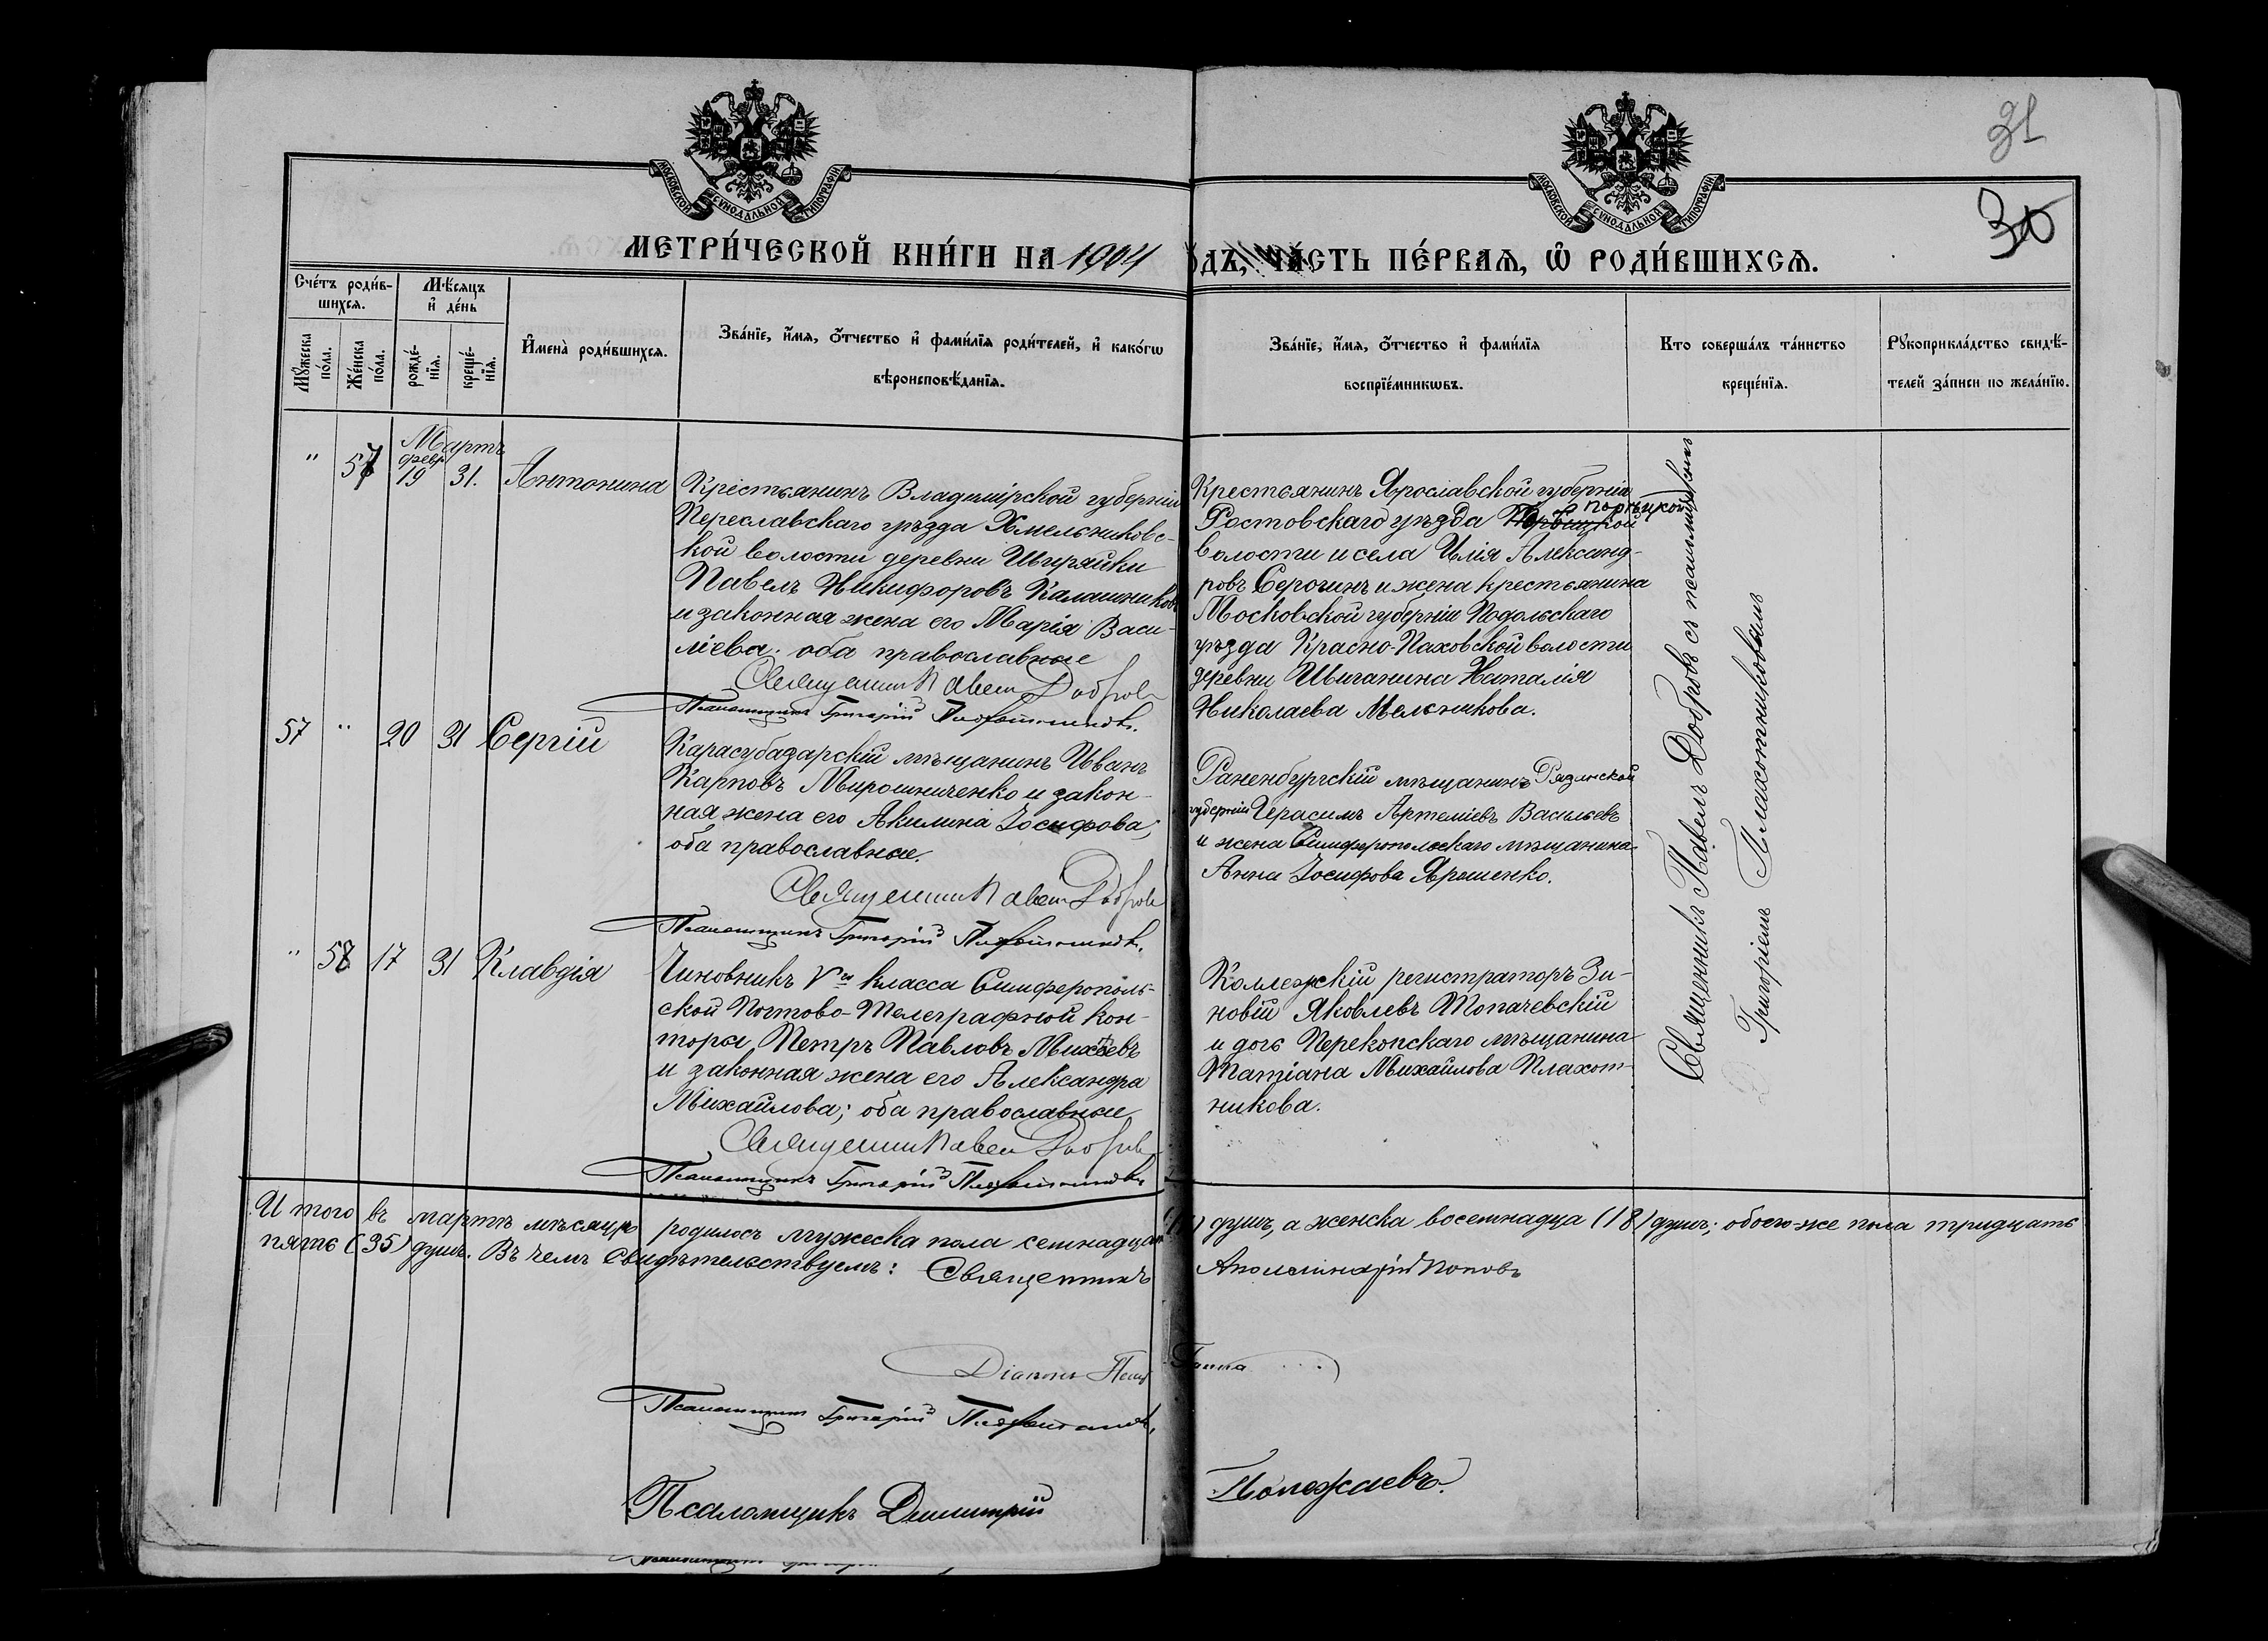 31
30
МОСКОВСКОЙ СУНОДАЛЬНОЙ ТИПОГРАФІИ
МОСКОВСКОЙ СУНОДАЛЬНОЙ ТИПОГРАФІИ
МЕТРИ́ЧЕСКОЙ КНИ́ГИ НА 1904
ДЪ, ЧА́СТЬ ПЕ́РВАЯ, Ѡ҆ РОДИ́ВШИХСѦ.
Сче́тъ роди́в-
шихсѧ.
Мѣ́сяцъ
и҆ де́нь
Мꙋ́жеска
по́ла.
Же́нска
по́ла.
рожде́-
нїѧ.
креще́-
нїѧ.
И҆мена̀ роди́вшихсѧ.
Зва́нїе, и҆́мѧ, ѻ҆́тчество и҆ фами́лїѧ роди́телей, и҆ како́гѡ
вѣроисповѣ́данїѧ.
Зва́нїе, и҆́мѧ, ѻ҆́тчество и҆ фами́лїѧ
воспрїе́мникѡвъ.
Кто соверша́лъ та́инство
креще́нїѧ.
Рꙋкоприкла́дство свидѣ́-
телей за́писи по жела́нїю.
Мартъ
февр
" 57 19 31. Антонина
Крестьянинъ Владимірской губерніи
Переславскаго уѣзда Хмельниковс-
кой волости деревни
Павелъ Никифоровъ Калашниковъ
и законная жена его Марія Васи-
ліева; оба православные
Священникъ Павелъ Добровъ
Псаломщикъ Григорій Плахотниковъ.
Крестьянинъ Ярославской губерніи
Ростовскаго уѣзда Порѣцкой
волости и села Илія Александ-
ровъ Серогинъ и жена крестьянина
Московской губерніи Подольскаго
уѣзда Красно-Паховской волости
деревни Шиганина Наталія
Николаева Мельникова.
57 " 20 31 Сергій
Карасубазарскій мѣщанинъ Иванъ
Карповъ Мирошниченко и закон-
ная жена его Акилина Іосифова;
оба православные.
Священникъ Павелъ Добровъ
Псаломщикъ Григорій Плахотниковъ.
Раненбургскій мѣщанинъ Рязанской
губерніи Герасимъ Артеміевъ Васильевъ
и жена Симферопольскаго мѣщанина
Анна Іосифова Ярошенко.
" 58 17 31 Клавдія
Чиновникъ V го класса Симферополь-
ской Почтово-Телеграфной Кон-
торы Петръ Павловъ Михѣевъ
и законная жена его Александра
Михайлова; оба православные
Священникъ Павелъ Добровъ
Псаломщикъ Григорій Плахотниковъ
Коллежскій регистраторъ Зи-
новій Яковлевъ Топачевскій
и дочь Перекопскаго мѣщанина
Татіана Михайлова Плахот-
никова.
Священникъ Павелъ Добровъ съ псаломщикомъ
Григоріемъ Плахотниковымъ
Итого въ мартѣ мѣсяцѣ родилось мужеска пола семнадцать (17) душъ, а женска восемнадца (18) душъ; обоего-же пола тридцать
пять (35) душъ. Въ чемъ свидѣтельствуемъ: Священникъ Аполлинарій Поповъ
Діаконъ
Псаломщикъ Григорій Плахотниковъ
Псаломщикъ Димитрій Полежаевъ.